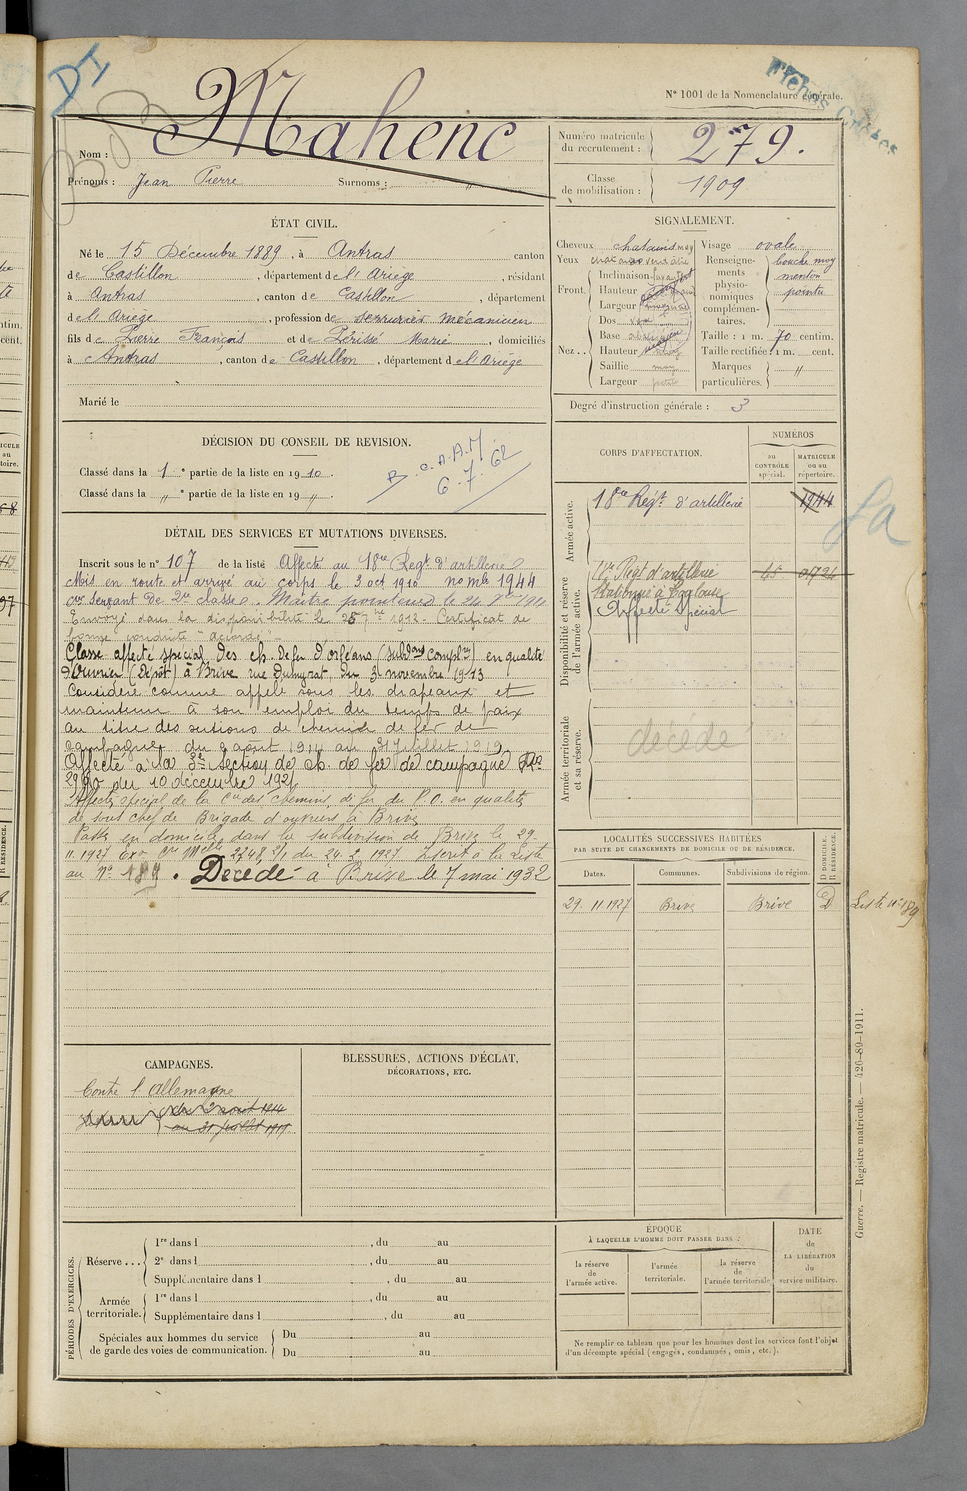 DI
Fiches
N° 1001 de la Nomenclature générale.
Nom : Mahenc
Prénoms : Jean Pierre Surnoms : "
Numéro matricule du recrutement : 279.
Classe de mobilisation : 1909
ÉTAT CIVIL.
Né le 15 Décembre 1889, à Antras canton
de Castillon, département de l'Ariège, résidant
à Antras, canton de Castillon, département
de l'Ariège, profession de serrurier mécanicien
fils de Pierre François et de Périssé Marie, domiciliés
à Antras, canton de Castillon, département de l'Ariège
Marié le
SIGNALEMENT.
Cheveux chatains moy
Yeux
Front.
Inclinaison
Hauteur
Largeur
Nez..
Dos
Base
Hauteur
Saillie moy
Largeur petite
Visage ovale
Renseignements physionomiques complémentaires.
bouche moy
menton
pointu
Taille : 1 m. 70 centim.
Taille rectifiée : 1 m. cent.
Marques particulières. "
Degré d'instruction générale : 3
DÉCISION DU CONSEIL DE REVISION.
Classé dans la 1e partie de la liste en 1910.
Classé dans la " e partie de la liste en 19 ".
B.C.A.A.M.
6.7.62
DÉTAIL DES SERVICES ET MUTATIONS DIVERSES.
Inscrit sous le n° 107 de la liste Affecté au 18me Regt. d'artillerie
Mis en route et arrivé au corps le 3 oct 1910 no mle 1944
servant de 2me classe. Maître pointeur le
Envoyé dans la disponibilité le 25 7bre 1912. Certificat de
bonne conduite "accordé".
Classé affecté spécial des ch. de fer d'Orléans (subdons complres) en qualité
d'Ouvrier (dépôt) à Brive rue Dumyrat, du 3 novembre 1913
Considéré comme appelé sous les drapeaux et
maintenu à son emploi du temps de paix
au titre des sections de chemin de fer de
campagne, du 2 aout 1914 au 31 Juillet 1919
Affecté à la 3e section de ch. de fer de campagne
du 10 décembre 1921
Affecté spécial de la Cie des chemins de fer du P.O. en qualité
de sous chef de Brigade d'ouvriers à Brive
Passé en domicile dans la subdivision de Brive le 29.
11.1927 2748 2/1 du 24.2.1927. Inscrit à la Liste
au N° 189. Décédé à Brive le 7 mai 1932
CORPS D'AFFECTATION.
NUMÉROS
au CONTRÔLE spécial.
MATRICULE ou au répertoire.
Armée active.
18me Regt. d'artillerie 1944
Disponibilité et réserve de l'armée active.
Regt d'artillerie
à Toulouse
Affecté Spécial
Armée territoriale et sa réserve.
décédé
LOCALITÉS SUCCESSIVES HABITÉES
PAR SUITE DE CHANGEMENTS DE DOMICILE OU DE RÉSIDENCE.
Dates. Communes. Subdivisions de région. D DOMICILE. R RÉSIDENCE.
29.11.1927 Brive Brive D
Liste n° 189
CAMPAGNES.
Contre l'Allemagne
du 2 aout 1914
au 31 Juillet 1919
BLESSURES, ACTIONS D'ÉCLAT,
DÉCORATIONS, ETC.
PÉRIODES D'EXERCICES.
Réserve...
1re dans l , du au
2e dans l , du au
Supplémentaire dans l , du au
Armée territoriale.
1re dans l , du au
Supplémentaire dans l , du au
Spéciales aux hommes du service de garde des voies de communication.
Du au
Du au
ÉPOQUE
À LAQUELLE L'HOMME DOIT PASSER DANS :
la réserve de l'armée active.
l'armée territoriale.
la réserve de l'armée territoriale
DATE de LA LIBÉRATION du service militaire.
Ne remplir ce tableau que pour les hommes dont les services font l'objet
d'un décompte spécial (engagés, condamnés, omis, etc.).
Guerre. — Registre matricule. — 426-89-1911.